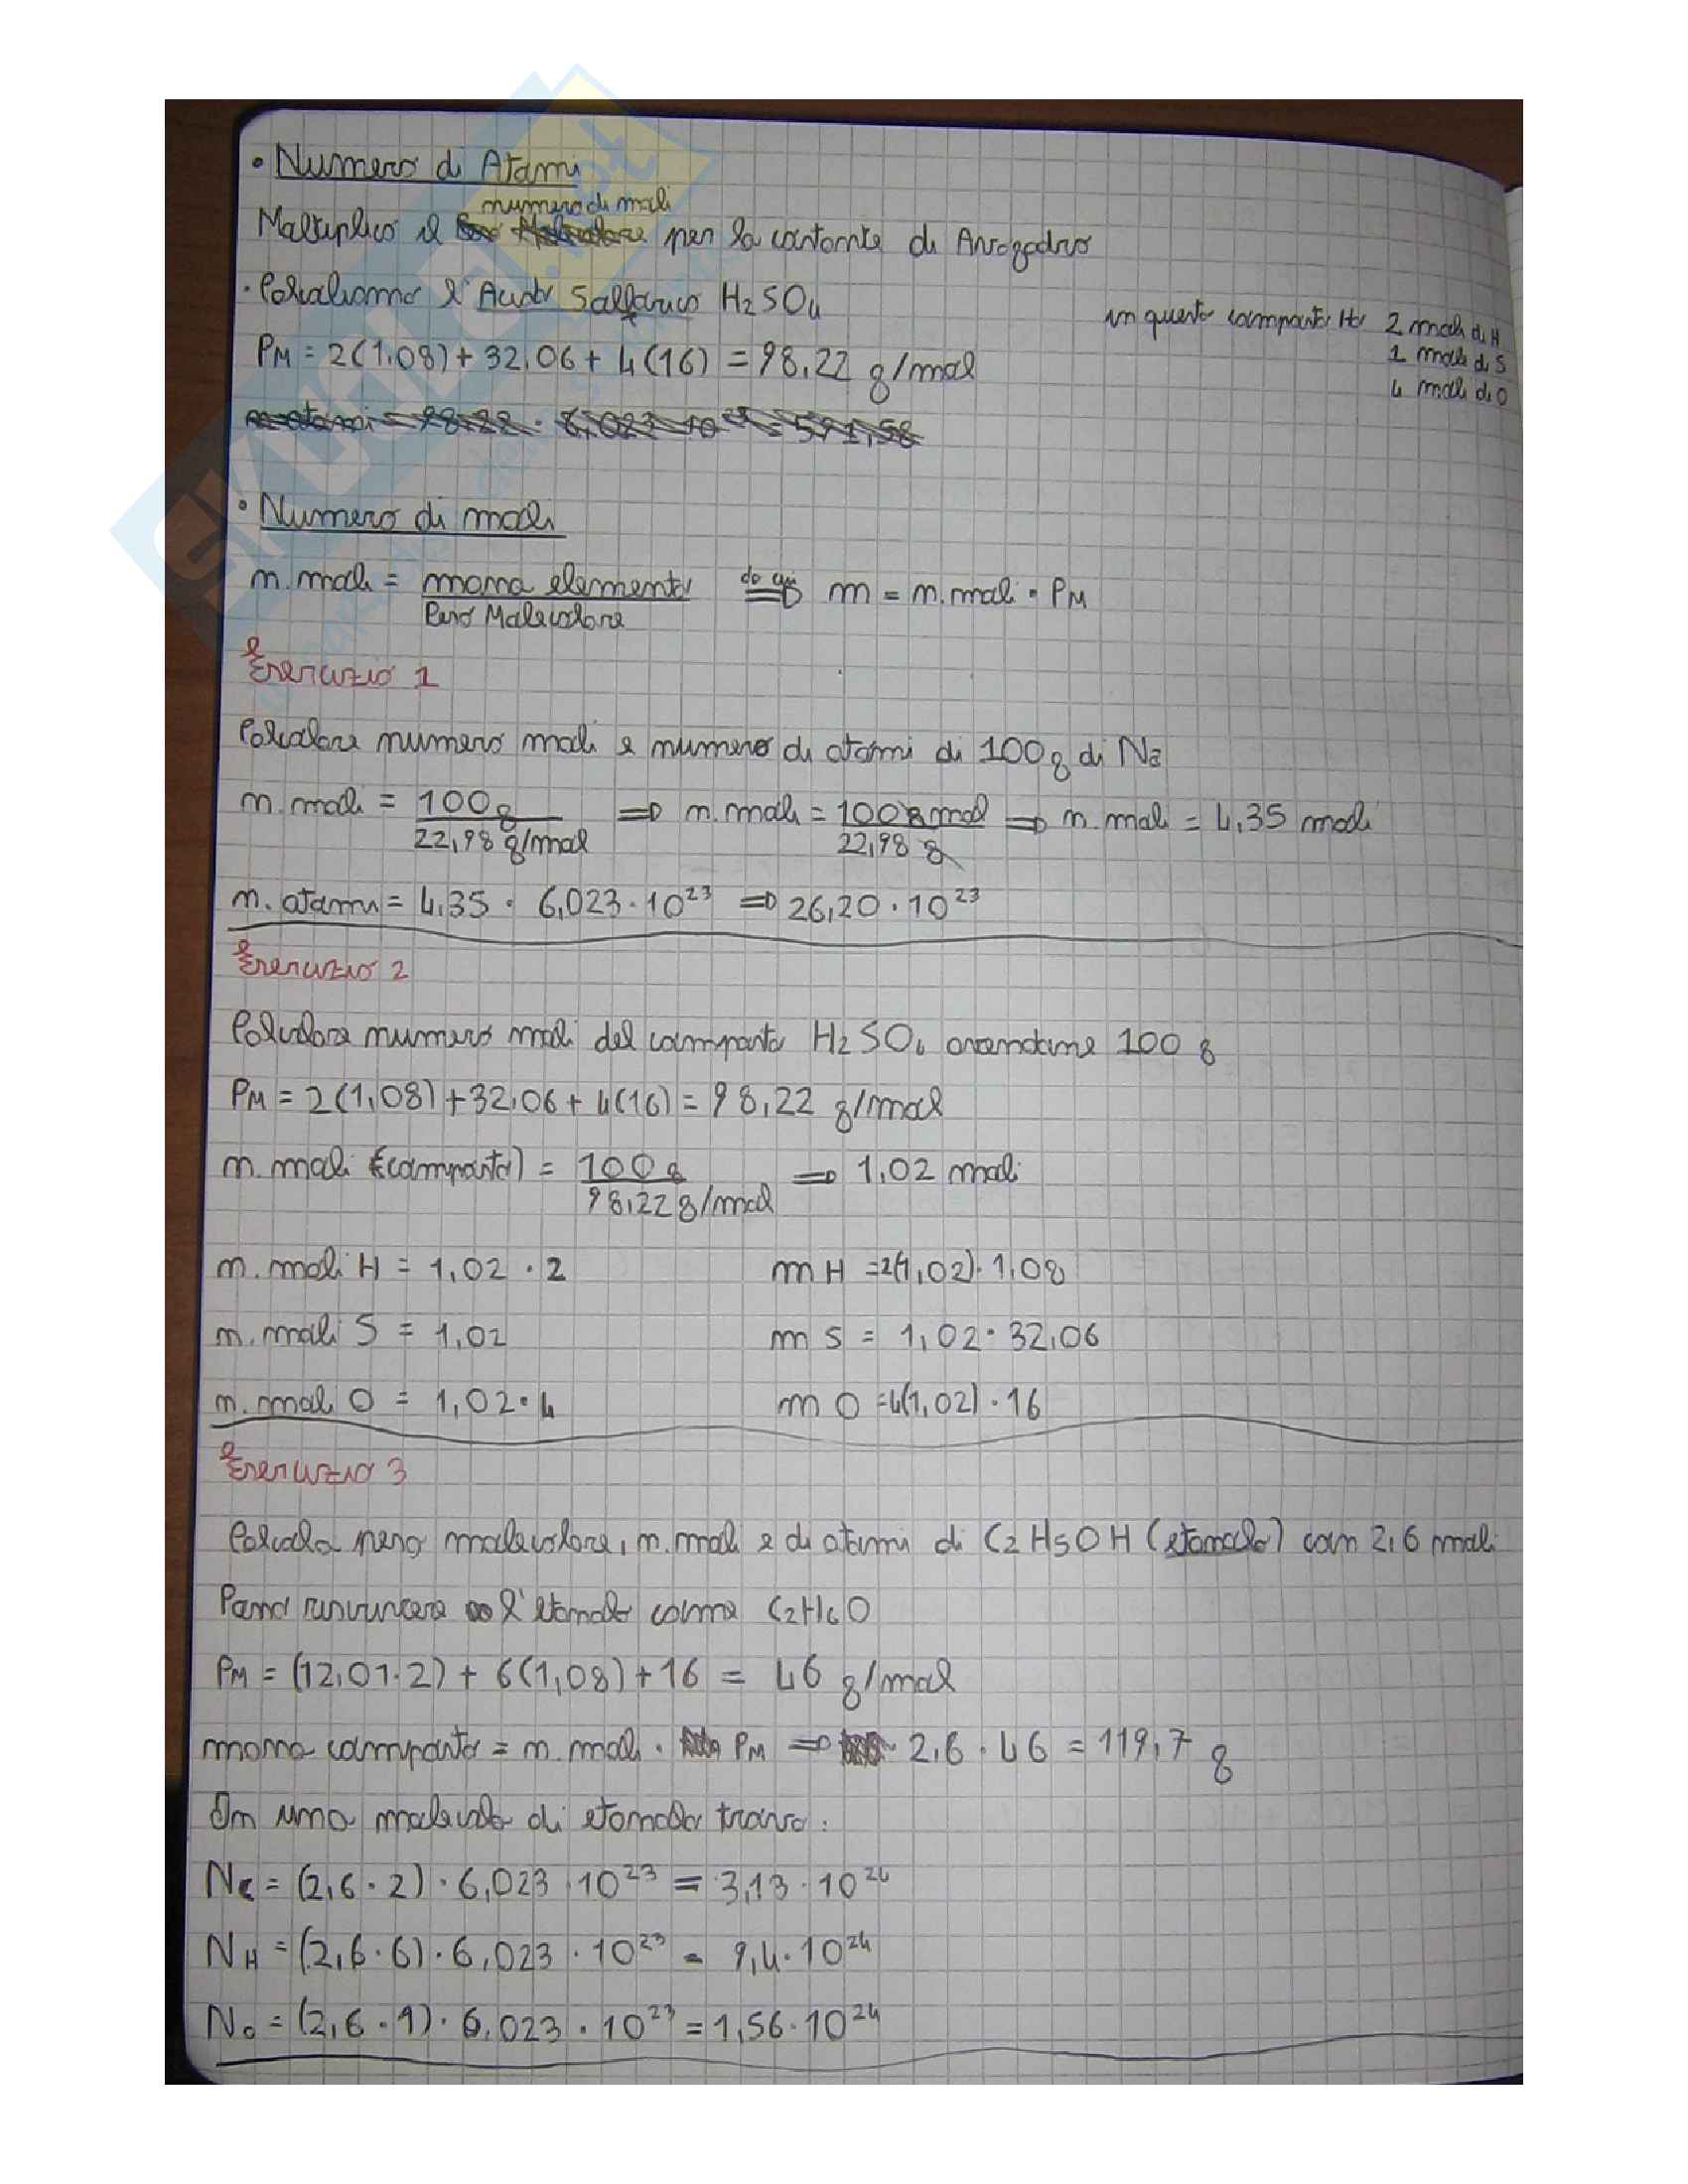 • Numero di Atomi
numero di moli
Moltiplico il per la costante di Avogadro
• Calcoliamo l'Acido Solforico H₂SO₄
in questo composto Ho 2 moli di H
1 mole di S
4 moli di O
PM = 2(1,08) + 32,06 + 4(16) = 98,22 g/mol
n atomi = 98,22 · 6,023 · 10²³ = 591,58
• Numero di moli
n. moli = massa elemento / Peso Molecolare da cui ⇒ m = n. moli · PM
Esercizio 1
Calcolare numero moli e numero di atomi di 100 g di Na
n. moli = 100 g / 22,98 g/mol ⇒ n. moli = 100 g mol / 22,98 g ⇒ n. moli = 4,35 moli
n. atomi = 4,35 · 6,023 · 10²³ ⇒ 26,20 · 10²³
Esercizio 2
Calcolare numero moli del composto H₂SO₄ avendone 100 g
PM = 2(1,08) + 32,06 + 4(16) = 98,22 g/mol
n. moli (composto) = 100 g / 98,22 g/mol ⇒ 1,02 moli
n. moli H = 1,02 · 2 m H = 2(1,02) · 1,08
n. moli S = 1,02 m S = 1,02 · 32,06
n. moli O = 1,02 · 4 m O = 4(1,02) · 16
Esercizio 3
Calcola peso molecolare, n. moli e di atomi di C₂H₅OH (etanolo) con 2,6 moli
Posso riscrivere l'etanolo come C₂H₆O
PM = (12,01 · 2) + 6(1,08) + 16 = 46 g/mol
massa composto = n. moli · PM ⇒ 2,6 · 46 = 119,7 g
In una molecola di etanolo trovo:
NC = (2,6 · 2) · 6,023 · 10²³ = 3,13 · 10²⁴
NH = (2,6 · 6) · 6,023 · 10²³ = 9,4 · 10²⁴
NO = (2,6 · 1) · 6,023 · 10²³ = 1,56 · 10²⁴